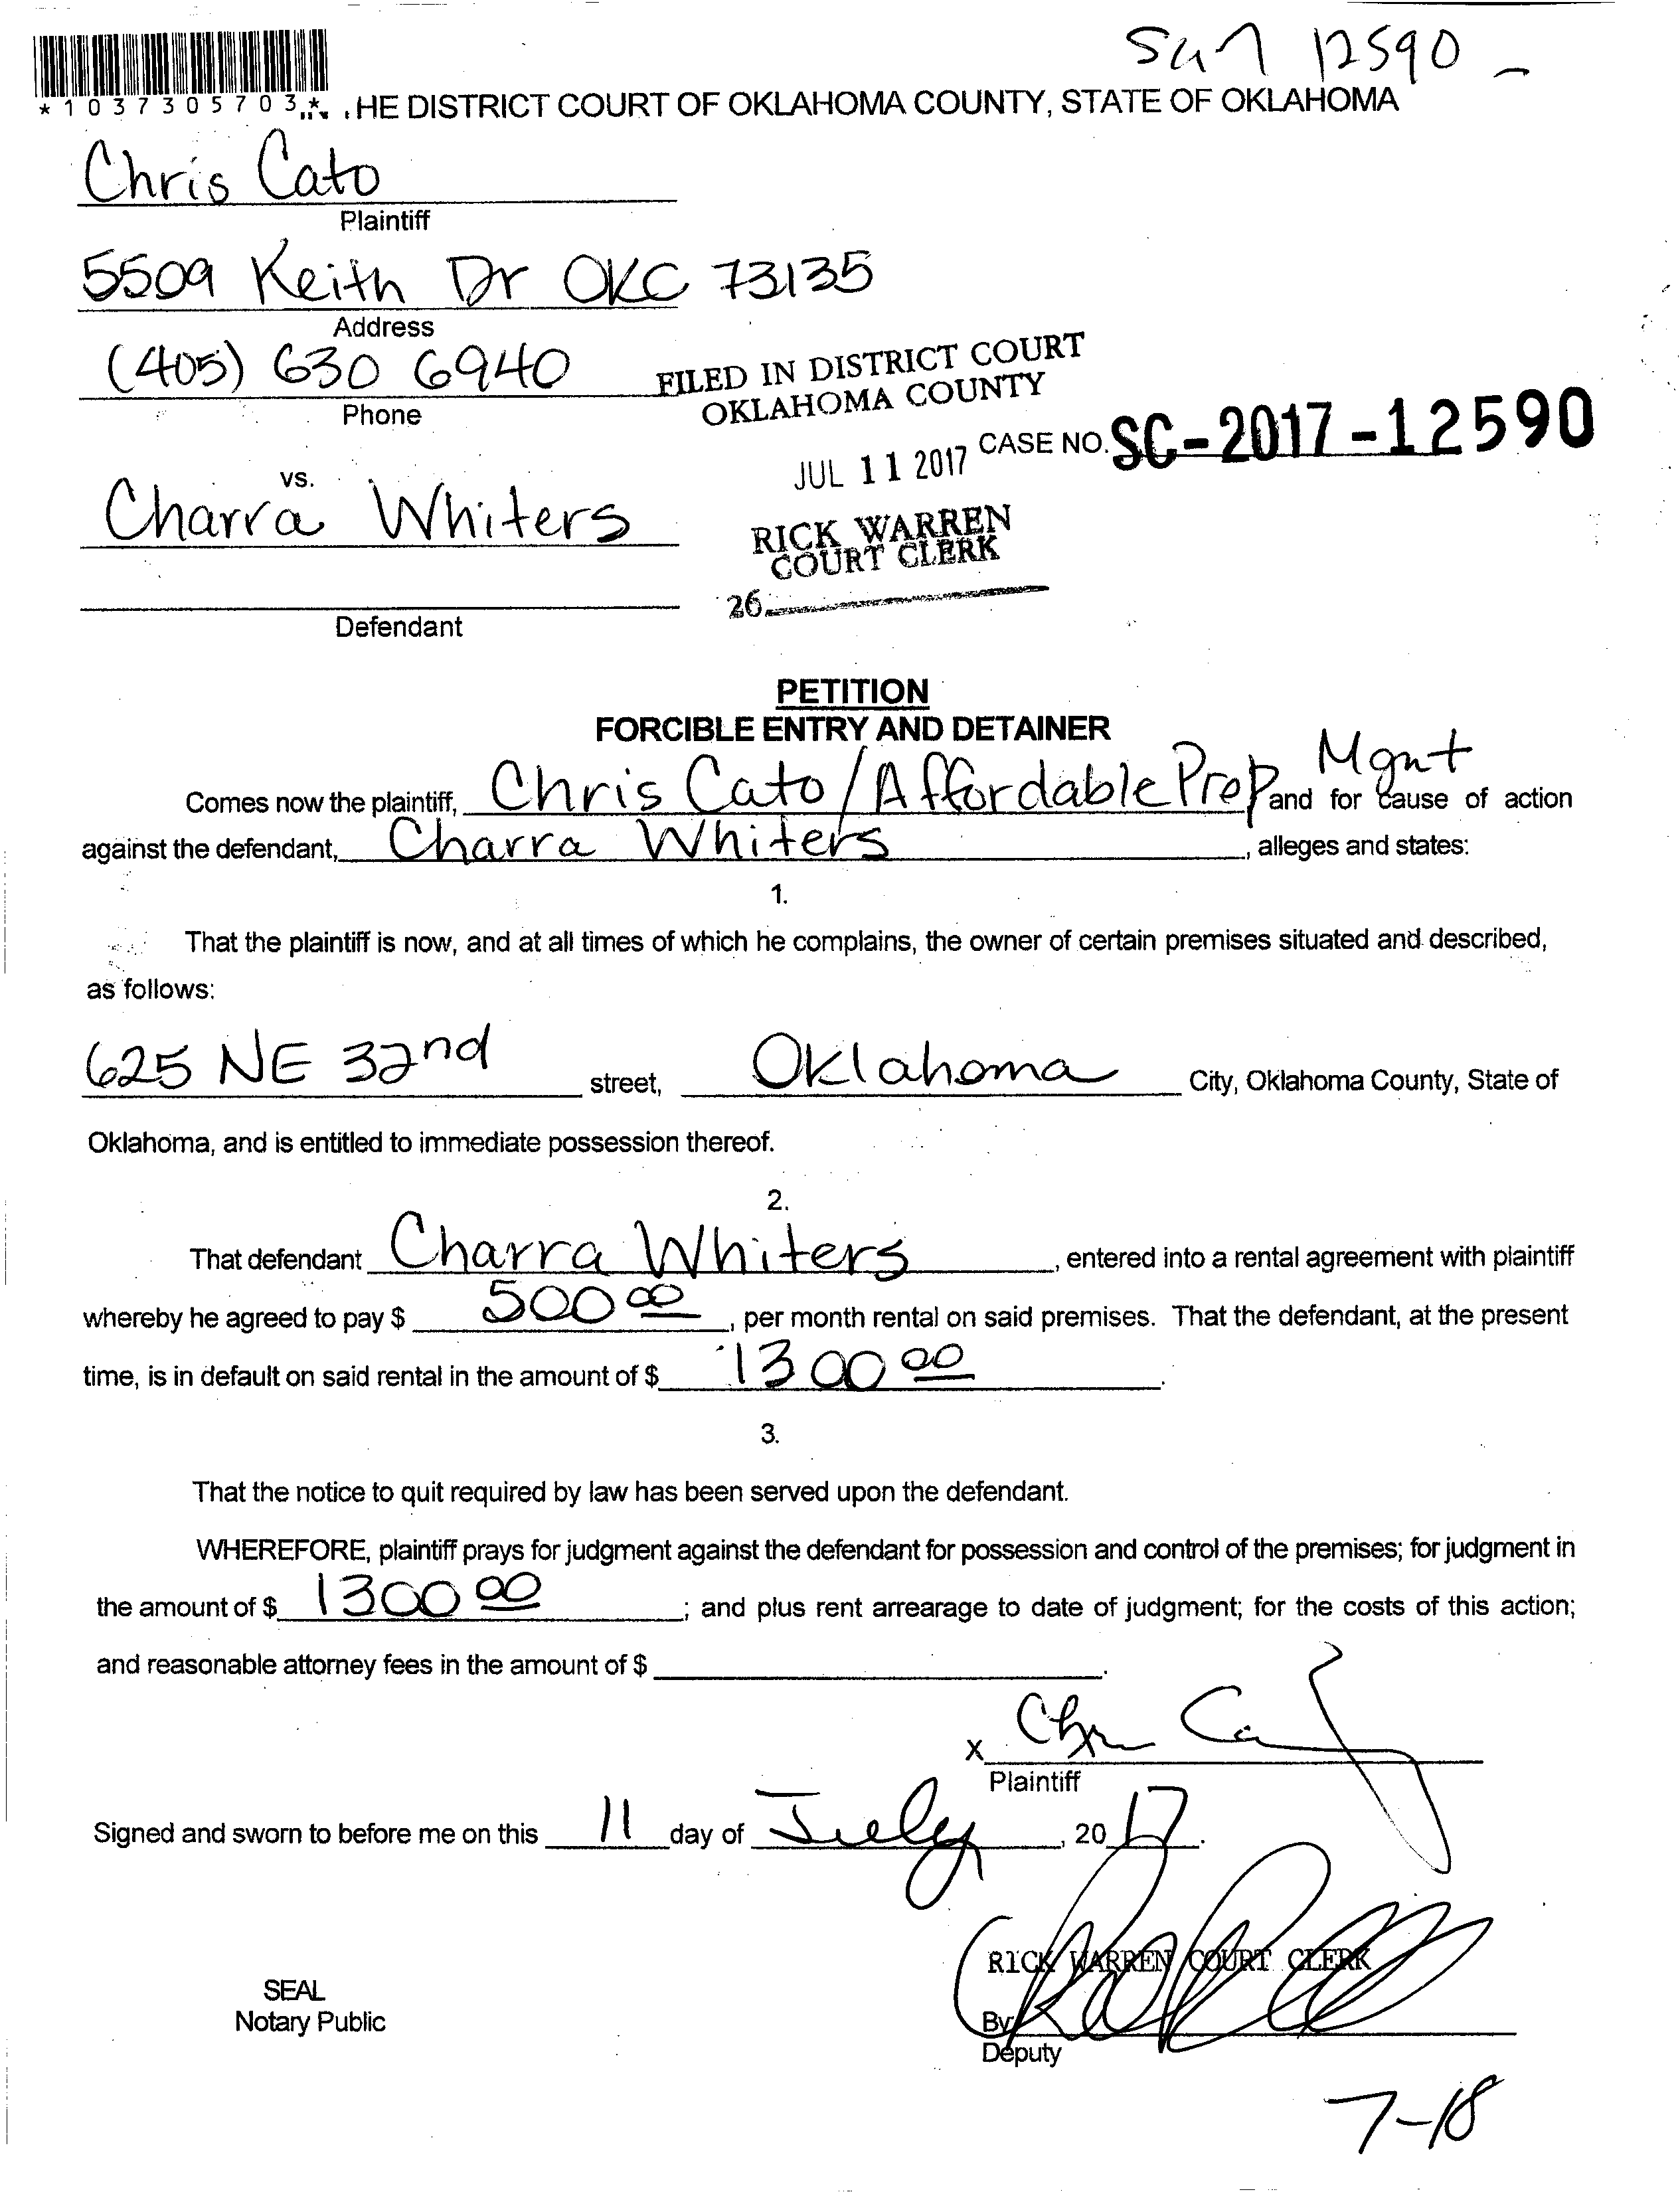 12590 -
* 1 0 3 7 3 0 5 7 0 3 *
HE DISTRICT COURT OF OKLAHOMA COUNTY, STATE OF OKLAHOMA
Chris Cato
Plaintiff
5509 Keith Dr OKC 73135
Address
(405) 630 6940
Phone
FILED IN DISTRICT COURT
OKLAHOMA COUNTY
JUL 11 2017
CASE NO. SC-2017-12590
vs.
Charra Whiters
RICK WARREN
COURT CLERK
26
Defendant
PETITION
FORCIBLE ENTRY AND DETAINER
Comes now the plaintiff, Chris Cato/Affordable Prop Mgnt and for cause of action
against the defendant, Charra Whiters, alleges and states:
1.
That the plaintiff is now, and at all times of which he complains, the owner of certain premises situated and described,
as follows:
625 NE 32nd street, Oklahoma City, Oklahoma County, State of
Oklahoma, and is entitled to immediate possession thereof.
2.
That defendant Charra Whiters, entered into a rental agreement with plaintiff
whereby he agreed to pay $ 500 00, per month rental on said premises. That the defendant, at the present
time, is in default on said rental in the amount of $ 1300 00.
3.
That the notice to quit required by law has been served upon the defendant.
WHEREFORE, plaintiff prays for judgment against the defendant for possession and control of the premises; for judgment in
the amount of $ 1300 00; and plus rent arrearage to date of judgment; for the costs of this action;
and reasonable attorney fees in the amount of $ .
X
Plaintiff
Signed and sworn to before me on this 11 day of July, 2017.
RICK WARREN COURT CLERK
SEAL
Notary Public
By
Deputy
7-18